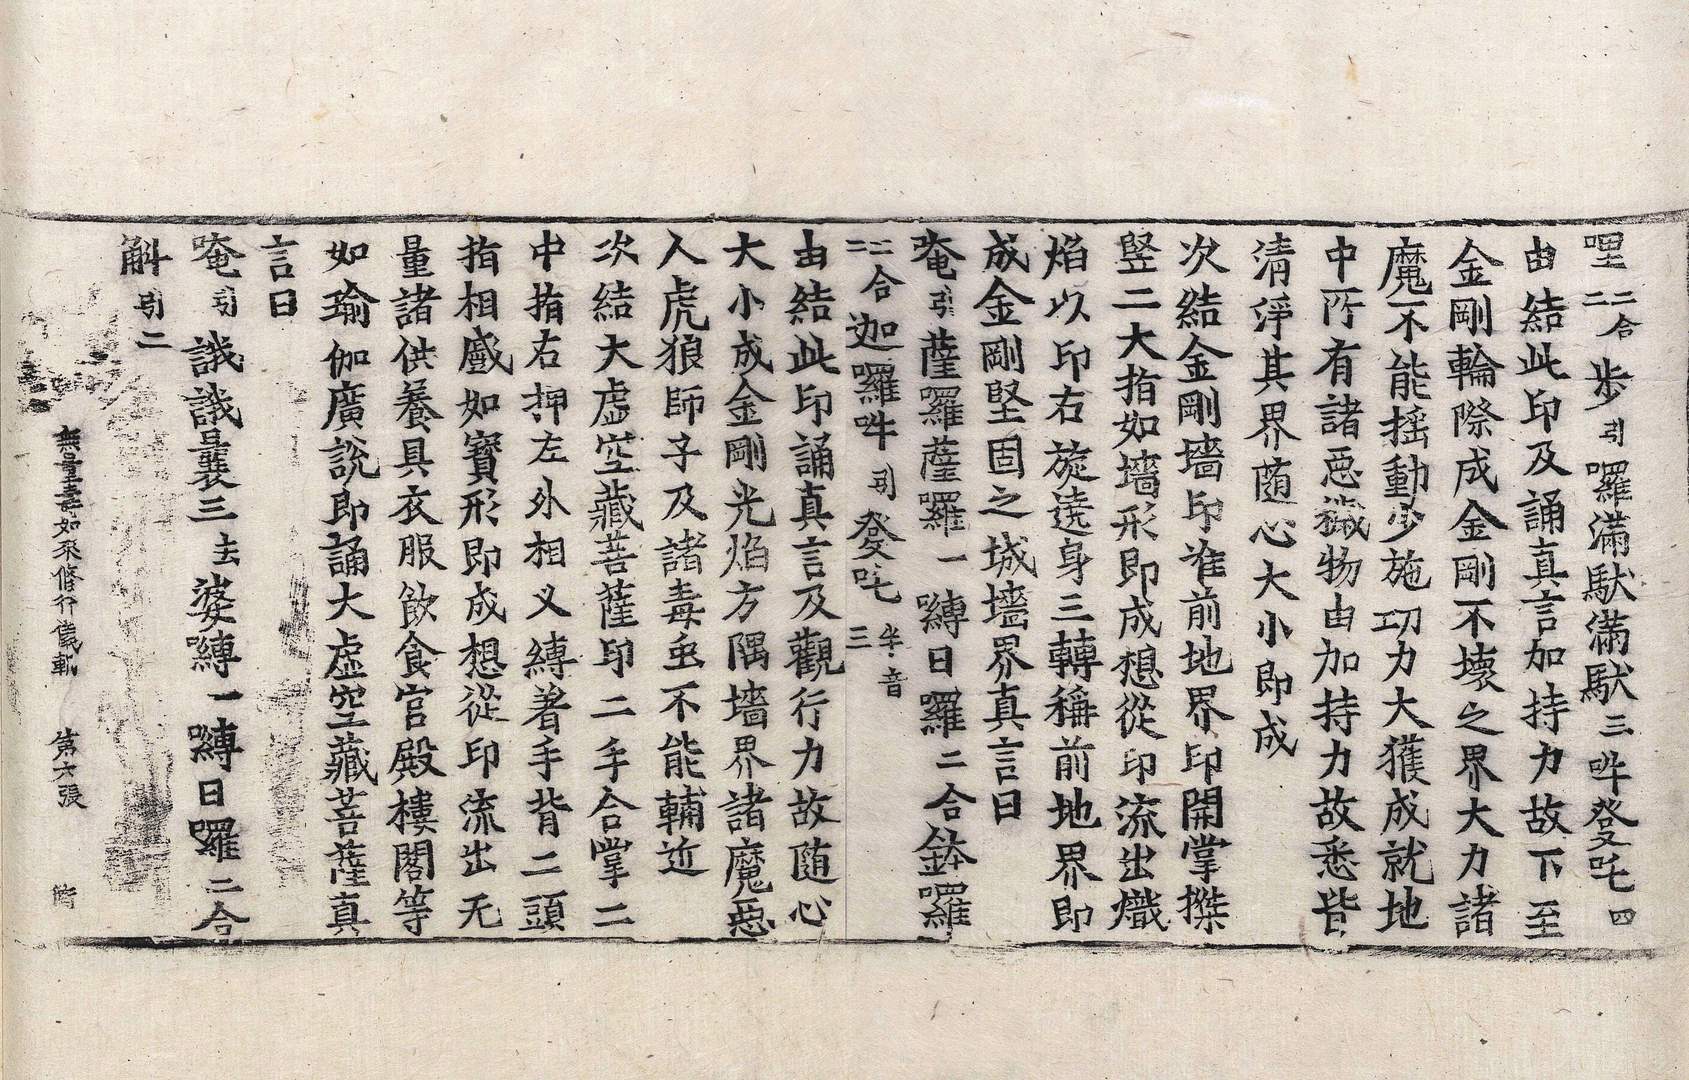 哩二合二步引囉滿馱滿馱三吽發吒四
由結此印及誦真言加持力故下至
金剛輪際成金剛不壞之界大力諸
魔不能搖動少施功力大獲成就地
中所有諸惡穢物由加持力故悉皆
清淨其界随心大小即成
次結金剛墻印准前地界印開掌搩
竪二大指如墻形即成想從印流出熾
焰以印右旋遶身三轉稱前地界即
成金剛堅固之城墻界真言曰
唵引薩囉薩囉一嚩日囉二合鉢囉
二合二迦囉吽引發吒半音三
由結此印誦真言及觀行力故随心
大小成金剛光焰方隅墻界諸魔惡
人虎狼師子及諸毒䖝不能輔近
次結大虛空藏菩薩印二手合掌二
中指右押左外相叉縛著手背二頭
指相蹙如寶形即成想從印流出无
量諸供養具衣服飲食官殿樓閣等
如瑜伽廣說即誦大虛空藏菩薩真
言曰
唵引誐誐曩三去婆嚩一嚩日囉二合
斛引二
無量壽如來修行儀軌 第六張